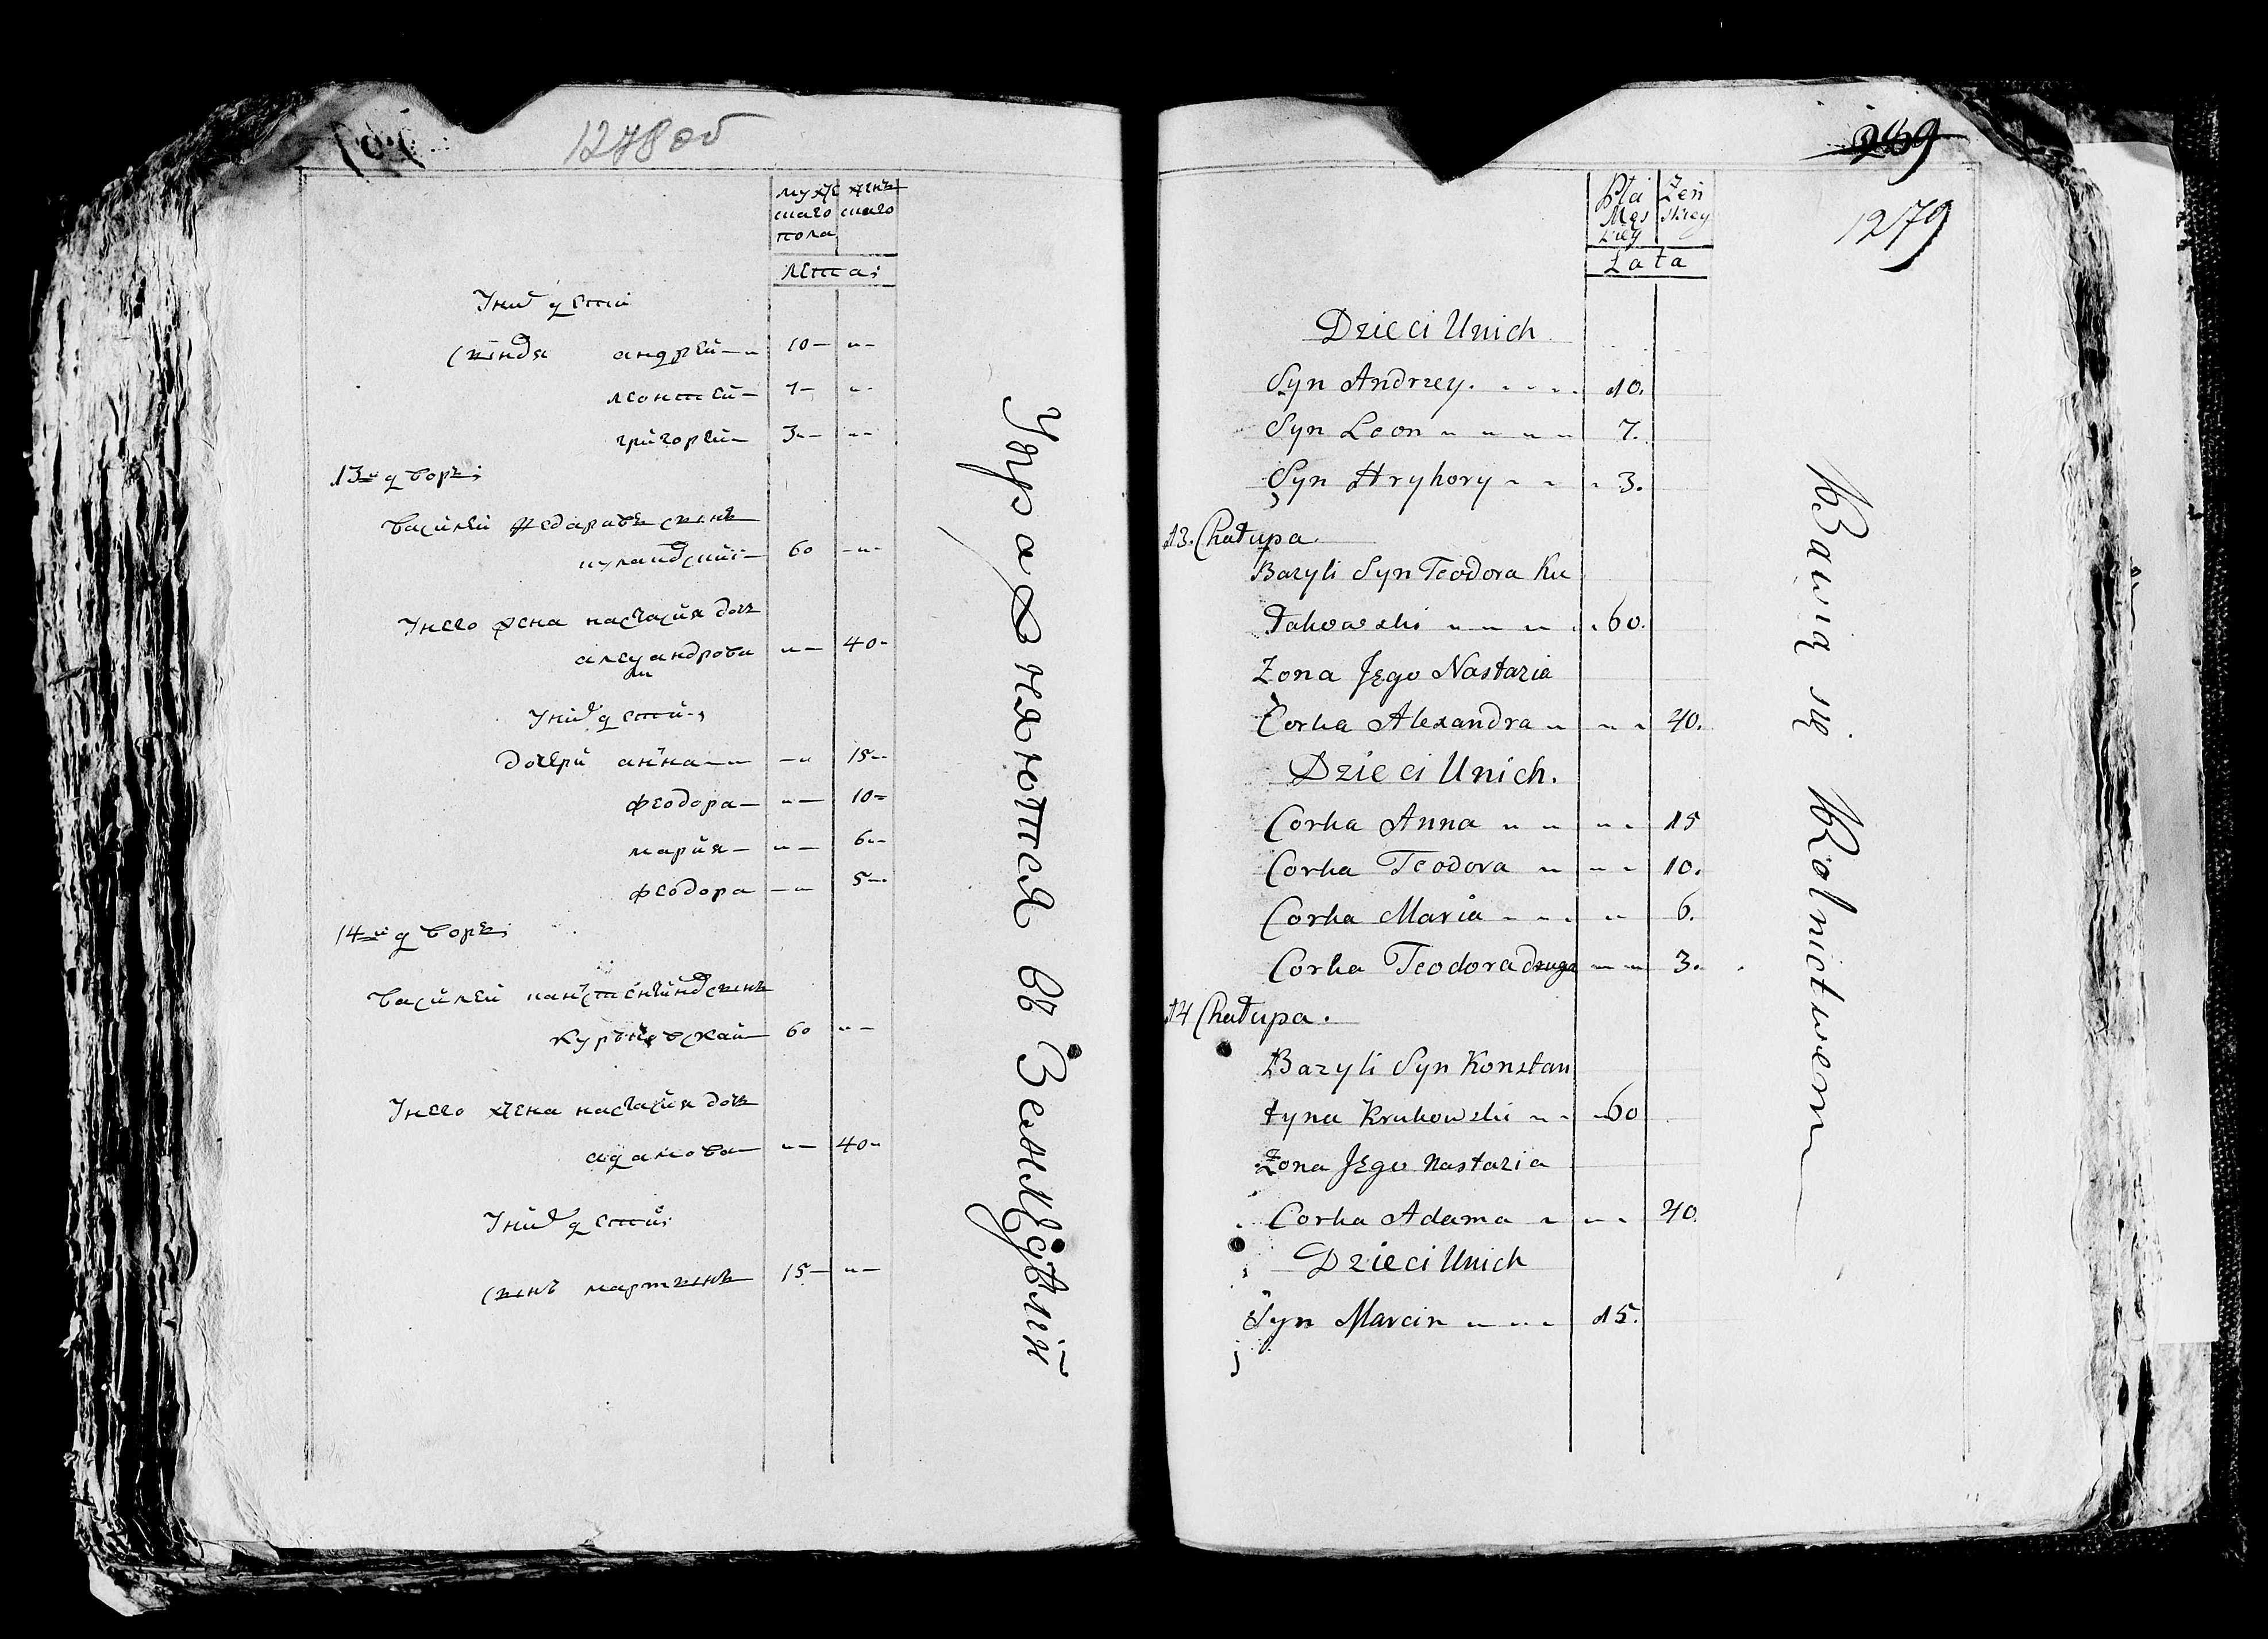 1278 об
муже женъ
скаго скаго
пола
лета:
У них дети
сыновя андрей 10
леонтей 7
григорей 3
13й дворъ:
василей федаравъ сынъ
60
У него жена настасия дочь
александрова 40
У них дети:
дочери анна 15
феодора 10
мария 6
феодора 5
14й дворъ:
василей канстентиндсынъ
60
У него жена настасия дочь
адамова 40
У них дети:
сынъ мартынъ 15
Упражняются въ Земледѣліи
289
1279
Płci Żeń
Męs skiey
kiey
Lata
Dzieci Unich
Syn Andrzey 10.
Syn Leon 7.
Syn Hryhory 3.
13. Chałupa
Bazyli Syn Teodora Ku
łakowski 60.
Zona Jego Nastazia
Corka Alexandra 40.
Dzieci Unich.
Corka Anna 15
Corka Teodora 10.
Corka Maria 6.
Corka Teodora druga 3.
14 Chałupa.
Bazyli Syn Konstan
tyna Krukowski 60
Zona Jego Nastazia
Corka Adama 40.
Dzieci Unich
Syn Marcin 15.
Bawią się Rolnictwem